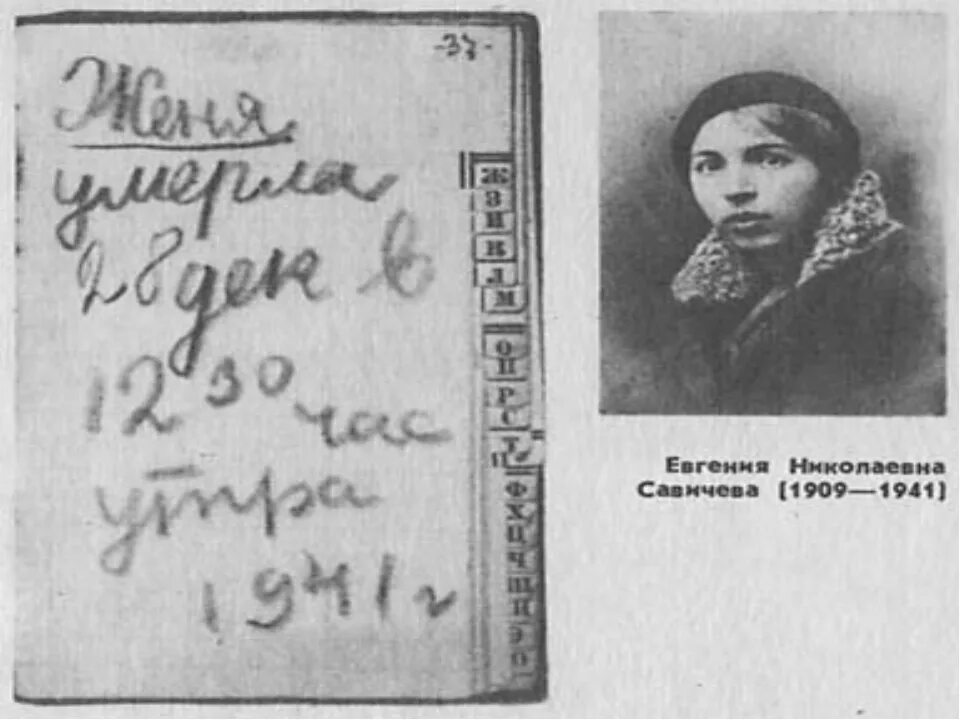 -37-
Женя
умерла
28 дек в
12 30 час
утра
1941 г
Ж
З
И
К
Л
М
О
П
Р
С
Т
Ф
Х
Ц
Ч
Ш
Э
Евгения Николаевна
Савичева (1909—1941)